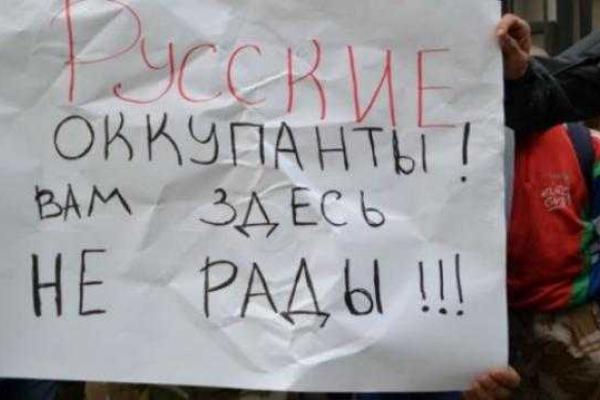 РУССКИЕ
ОККУПАНТЫ!
ВАМ ЗДЕСЬ
НЕ РАДЫ!!!